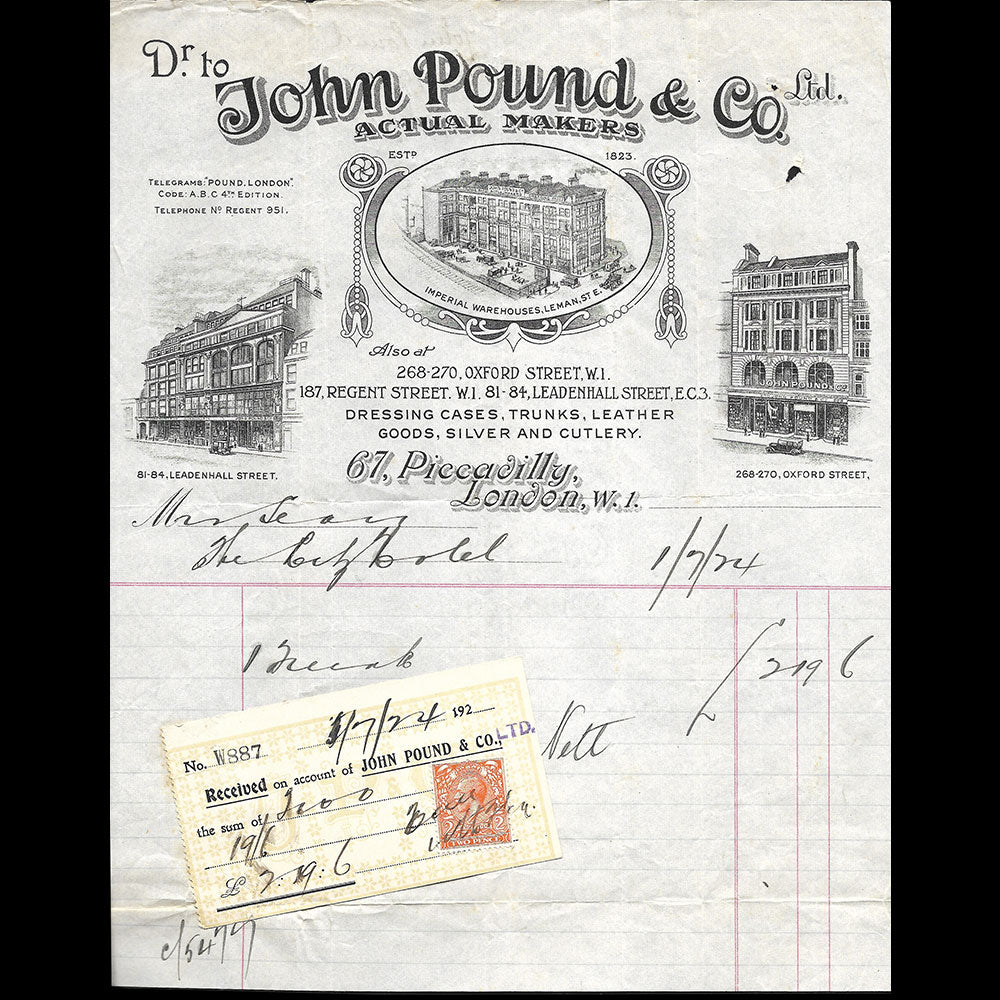 Dr. to
John Pound & Co. Ltd.
ACTUAL MAKERS
ESTD 1823.
TELEGRAMS: "POUND, LONDON".
CODE: A.B.C 4TH EDITION.
TELEPHONE No REGENT 951.
IMPERIAL WAREHOUSES, LEMAN, ST E.
JOHN POUND & Co
Also at
268-270, OXFORD STREET, W.1.
187, REGENT STREET. W.1. 81-84, LEADENHALL STREET, E.C.3.
DRESSING CASES, TRUNKS, LEATHER
GOODS, SILVER AND CUTLERY.
81-84, LEADENHALL STREET.
268-270, OXFORD STREET,
67, Piccadilly,
London, W.1.
Mrs
The Hotel
1/7/24
1
£ 2 19 6
Nett
No. W887 1/7/24 192
Received on account of JOHN POUND & CO., LTD.
the sum of Two
19/6
£ 2:19:6
TWO PENCE